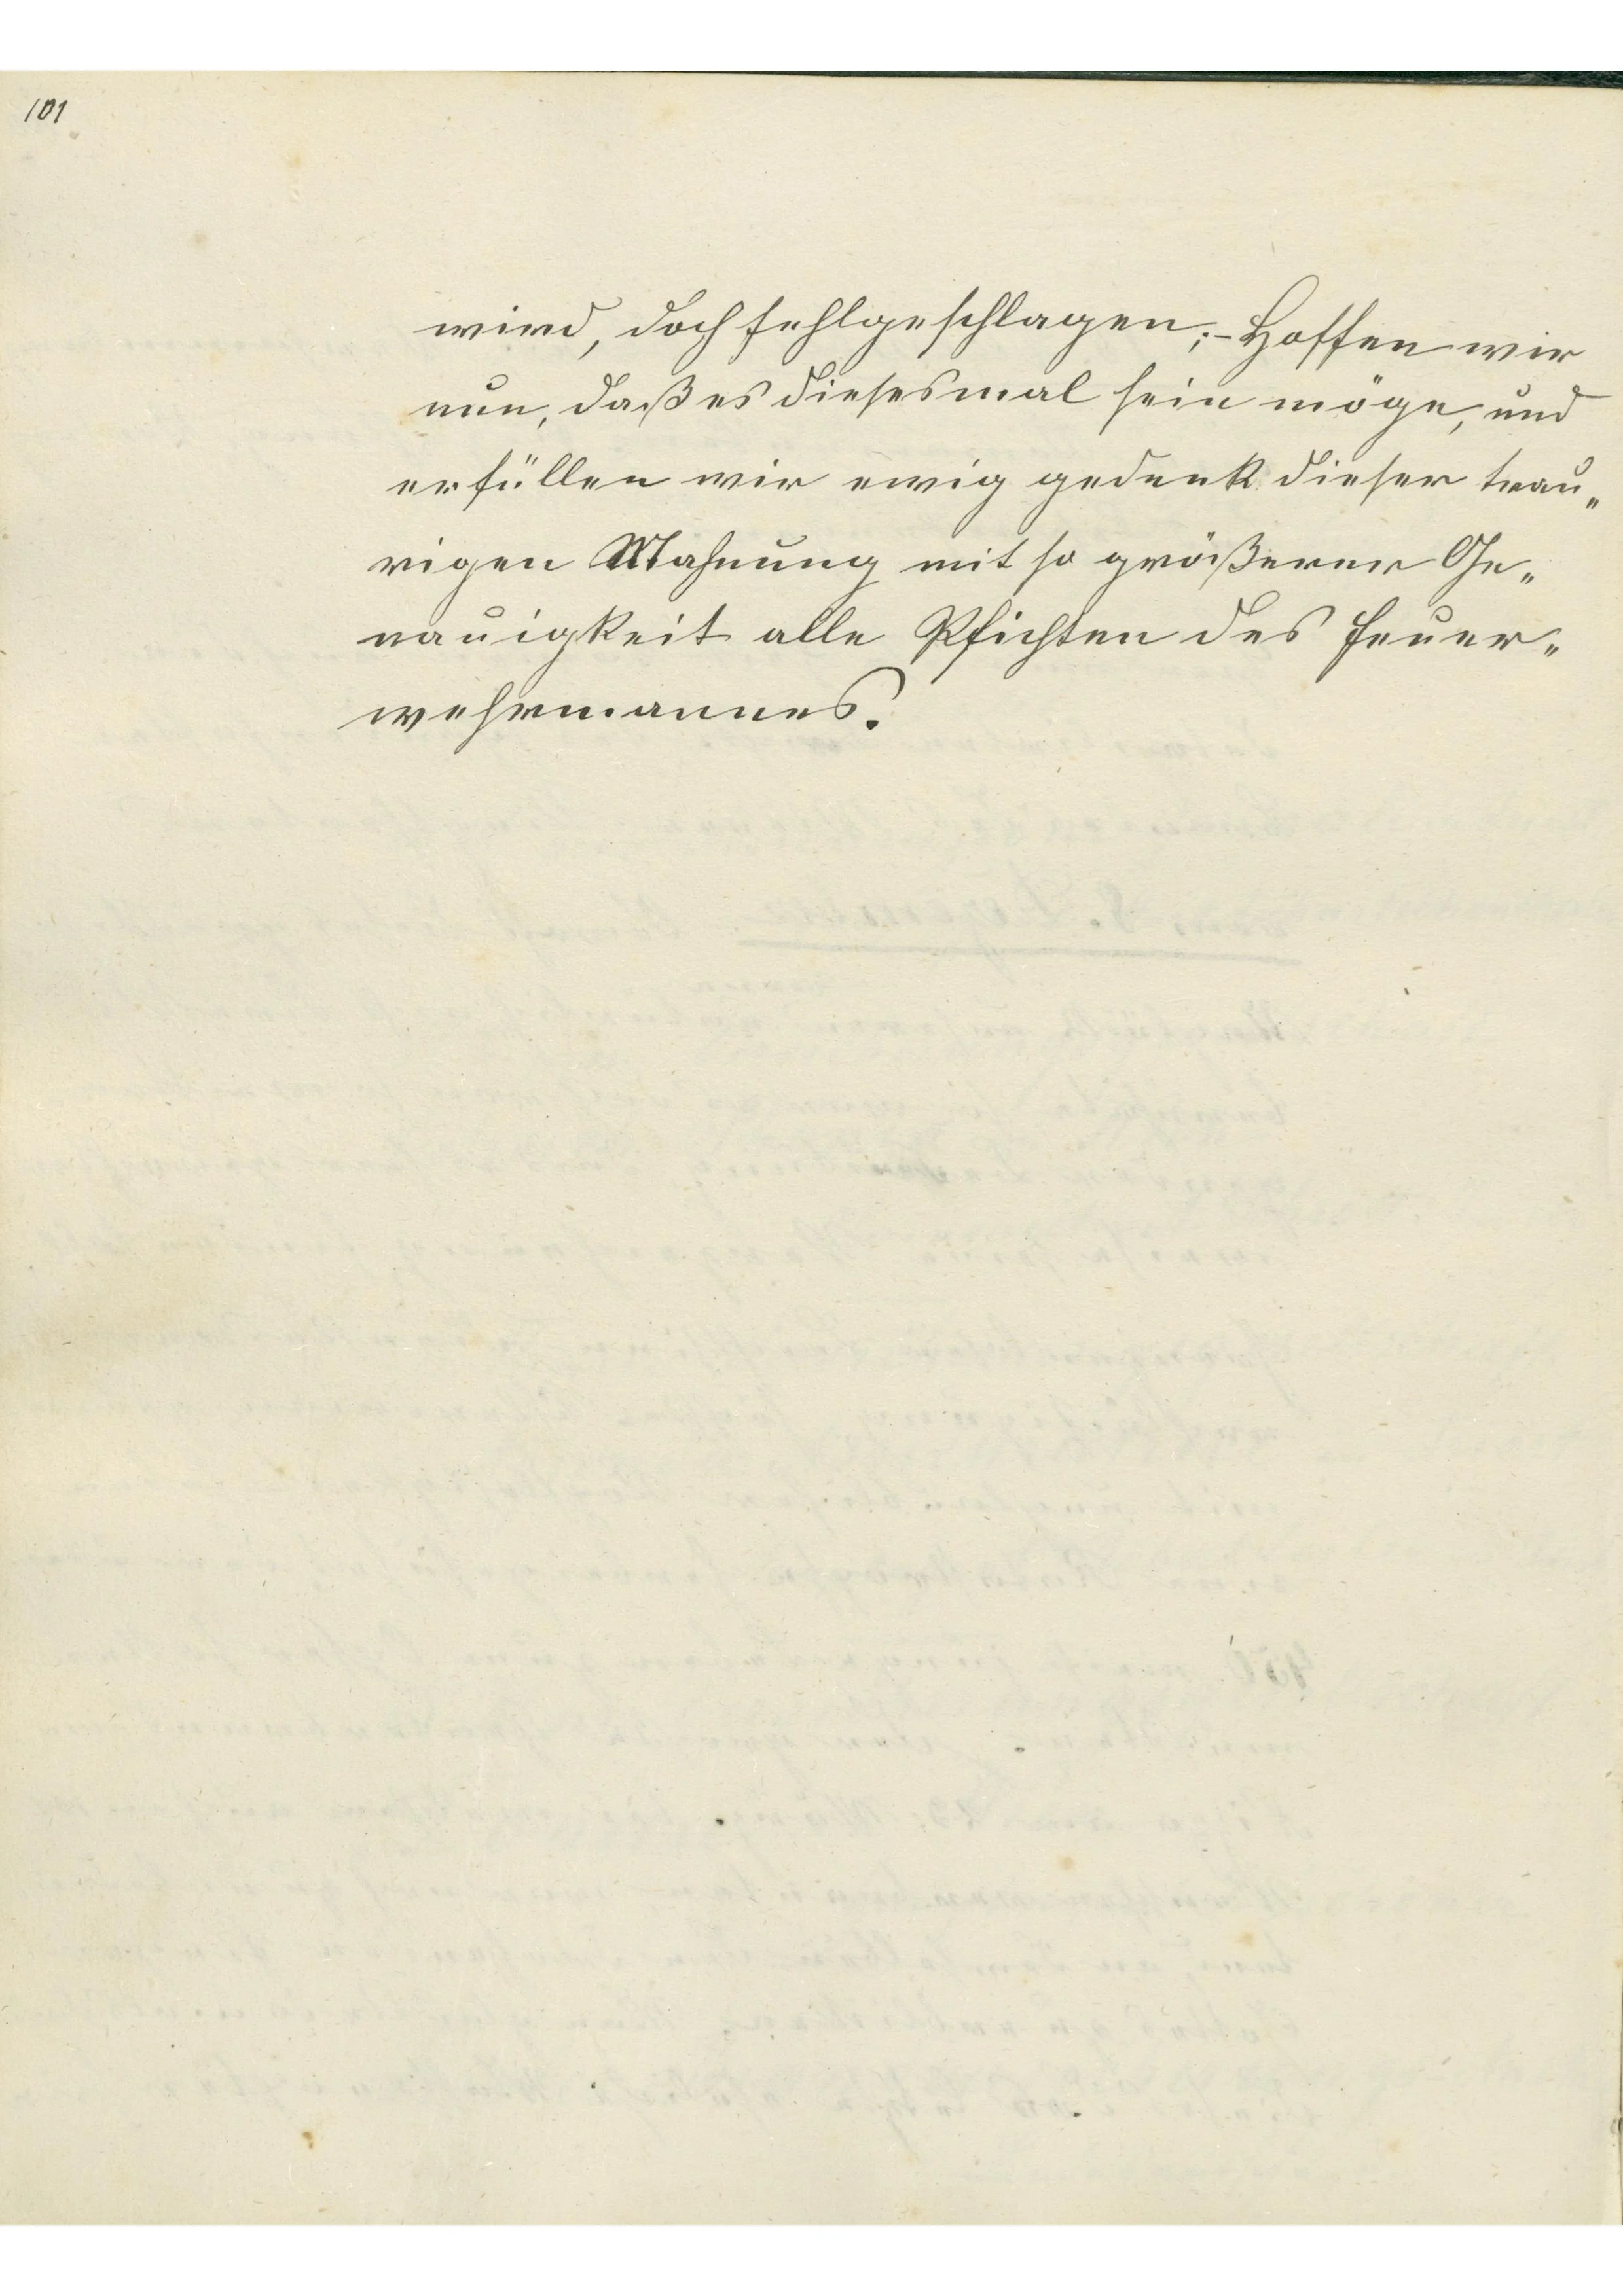 101
wird, doch fehlgeschlagen;- Hoffen wir
nun, daß es diesesmal sein möge, und
erfüllen wir ewig gedenk dieser trau„
rigen Mahnung mit so größerer Ge„
nauigkeit alle Pfichten des Feuer„
wehrmannes.